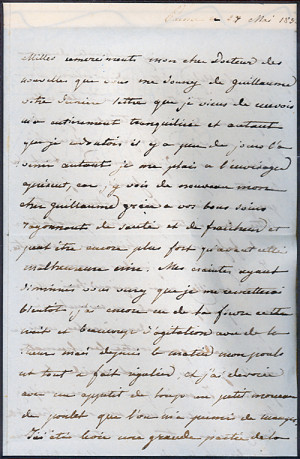 le 27 Mai 185
Milles remerciments mon cher docteur des
nouvelles que vous me donnez de Guillaume
votre dernière lettre que je viens de recevoir
m'a entierement tranquilisé et autant
que je redoutois il y a peu de jours l'a
venir autant je me plai a l'envisager
apresent, car j'y vois de nouveau mon
cher Guillaume grâce a vos bons soins
rayonnant de santé et de fraicheur et
peut être encore plus fort qu'avant cette
malheureuse Mes craintes ayant
diminué vous verez que je me remetterai
bientot, j'ai encore eu de la fievre cette
nuit et beaucoup d'agitation avec de la
sueur mais depuis le matin mon pouls
est tout a fait regulier, et j'ai devoré
avec un appetit de loup un petit morceau
de poulet que l'on m'a permis de manger.
J'ai été levée une grande partie de la